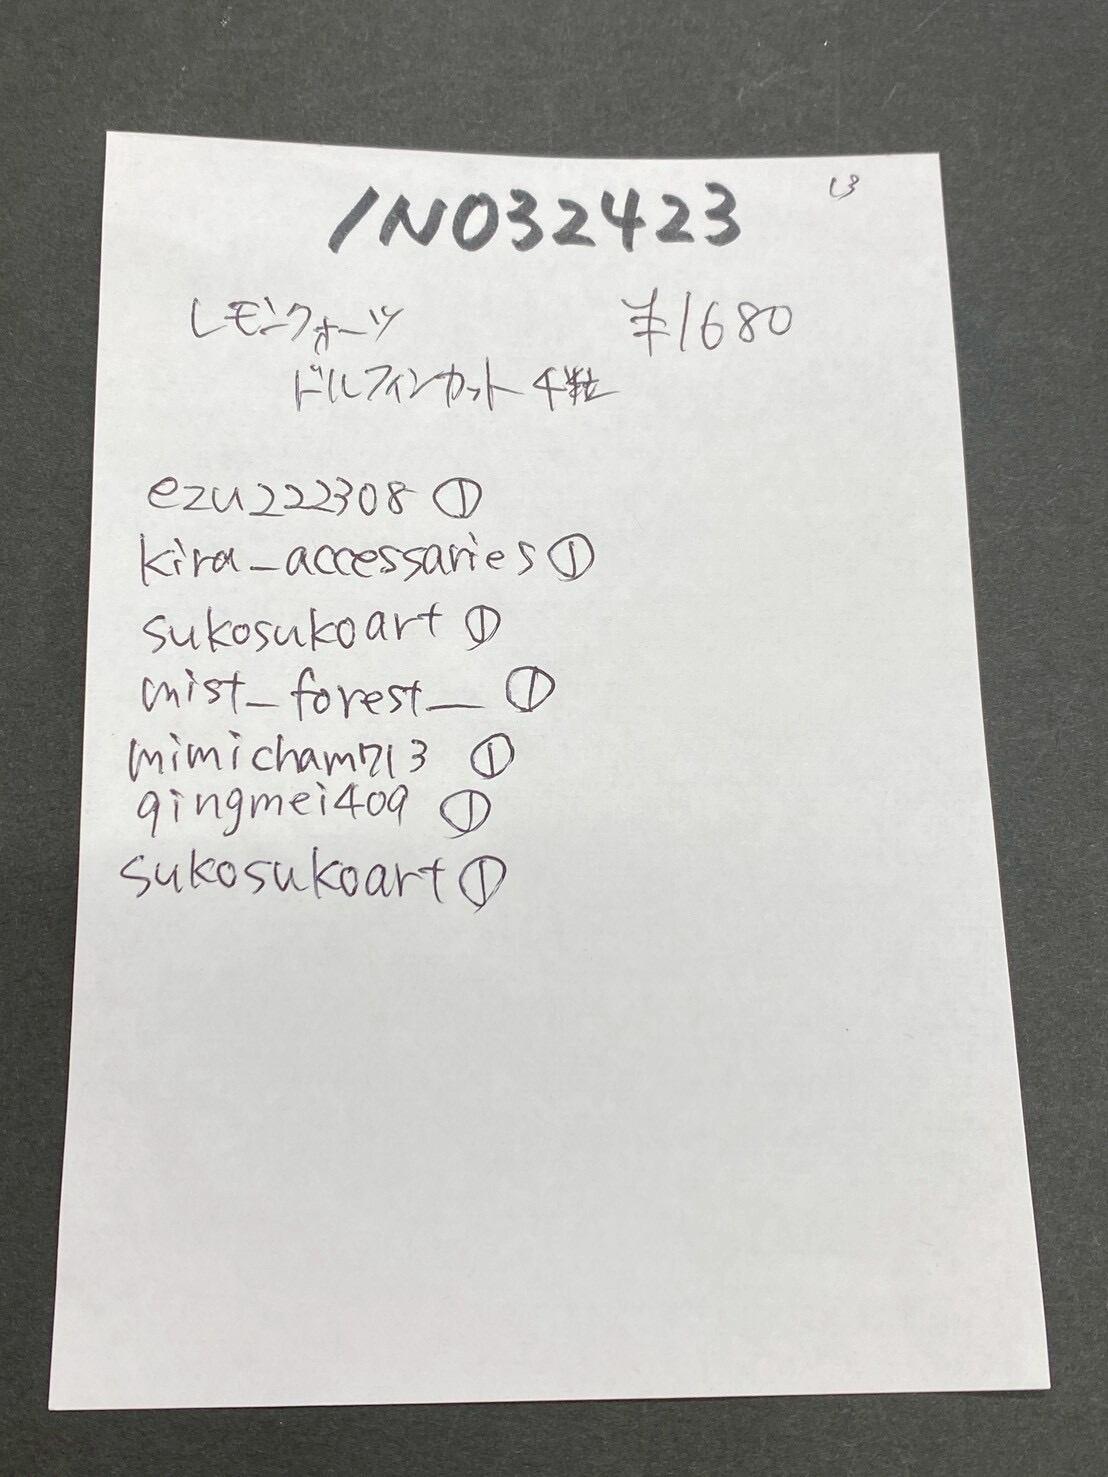 INO32423
レモンクォーツ ¥1680
ドルフィンカット4粒
ezu222308 ①
kira_accessaries ①
sukosukoart ①
mist_forest_ ①
mimicham713 ①
qingmei409 ①
sukosukoart ①